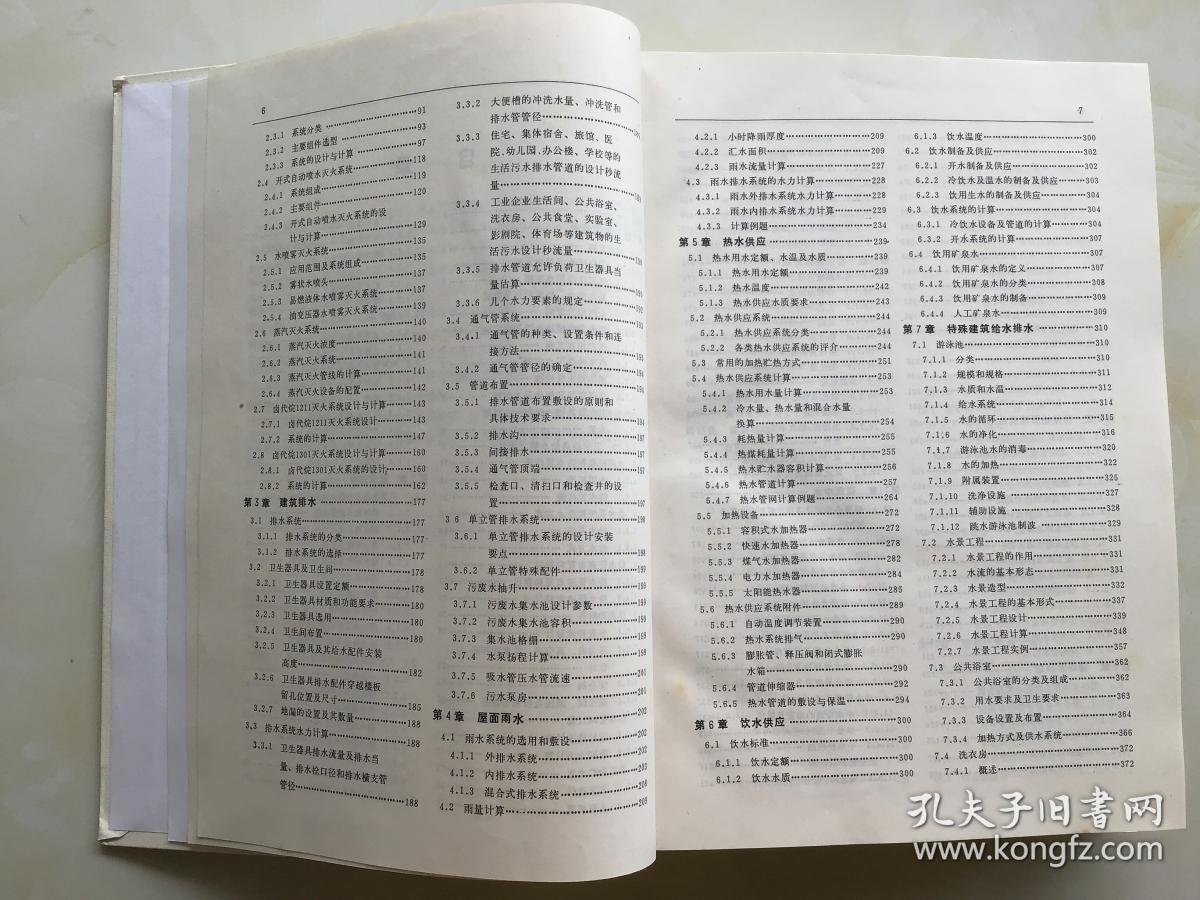 6
2.3.1 系统分类 …… 91
2.3.2 主要组件选型 …… 93
2.3.3 系统的设计与计算 …… 97
2.4 开式自动喷水灭火系统 …… 118
2.4.1 系统组成 …… 119
2.4.2 主要组件 …… 120
2.4.3 开式自动喷水灭火系统的设
计与计算 …… 129
2.5 水喷雾灭火系统 …… 135
2.5.1 应用范围及系统组成 …… 135
2.5.2 雾状水喷头 …… 135
2.5.3 易燃液体水喷雾灭火系统 …… 137
2.5.4 油变压器水喷雾灭火系统 …… 139
2.6 蒸汽灭火系统 …… 140
2.6.1 蒸汽灭火浓度 …… 140
2.6.2 蒸汽灭火系统 …… 141
2.6.3 蒸汽灭火管线的计算 …… 141
2.6.4 蒸汽灭火设备的配置 …… 142
2.7 卤代烷1211灭火系统设计与计算 …… 143
2.7.1 卤代烷1211灭火系统设计 …… 143
2.7.2 系统的计算 …… 147
2.8 卤代烷1301灭火系统设计与计算 …… 160
2.8.1 卤代烷1301灭火系统的设计 …… 160
2.8.2 系统的计算 …… 162
第3章 建筑排水 …… 177
3.1 排水系统 …… 177
3.1.1 排水系统的分类 …… 177
3.1.2 排水系统的选择 …… 177
3.2 卫生器具及卫生间 …… 178
3.2.1 卫生器具设置定额 …… 178
3.2.2 卫生器具材质和功能要求 …… 180
3.2.3 卫生器具选用 …… 180
3.2.4 卫生间布置 …… 180
3.2.5 卫生器具及其给水配件安装
高度 …… 182
3.2.6 卫生器具排水配件穿越楼板
留孔位置及尺寸 …… 185
3.2.7 地漏的设置及其数量 …… 188
3.3 排水系统水力计算 …… 188
3.3.1 卫生器具排水流量及排水当
量、排水栓口径和排水横支管
管径 …… 188
3.3.2 大便槽的冲洗水量、冲洗管和
排水管管径 ……
3.3.3 住宅、集体宿舍、旅馆、医
院、幼儿园、办公楼、学校等的
生活污水排水管道的设计秒流
量 ……
3.3.4 工业企业生活间、公共浴室、
洗衣房、公共食堂、实验室、
影剧院、体育场等建筑物的生
活污水设计秒流量 ……
3.3.5 排水管道允许负荷卫生器具当
量估算 ……
3.3.6 几个水力要素的规定 ……
3.4 通气管系统 …… 193
3.4.1 通气管的种类、设置条件和连
接方法 …… 193
3.4.2 通气管管径的确定 …… 194
3.5 管道布置 …… 194
3.5.1 排水管道布置敷设的原则和
具体技术要求 …… 194
3.5.2 排水沟 …… 197
3.5.3 间接排水 …… 197
3.5.4 通气管顶端 …… 197
3.5.5 检查口、清扫口和检查井的设
置 …… 197
3 6 单立管排水系统 …… 198
3.6.1 单立管排水系统的设计安装
要点 …… 198
3.6.2 单立管特殊配件 …… 199
3.7 污废水抽升 …… 199
3.7.1 污废水集水池设计参数 …… 199
3.7.2 污废水集水池容积 …… 199
3.7.3 集水池格栅 …… 199
3.7.4 水泵扬程计算 …… 199
3.7.5 吸水管压水管流速 …… 201
3.7.6 污水泵房 …… 201
第4章 屋面雨水 …… 202
4.1 雨水系统的选用和敷设 …… 202
4.1.1 外排水系统 …… 202
4.1.2 内排水系统 …… 203
4.1.3 混合式排水系统 …… 208
4.2 雨量计算 …… 209
7
4.2.1 小时降雨厚度 …… 209
4.2.2 汇水面积 …… 209
4.2.3 雨水流量计算 …… 227
4.3 雨水排水系统的水力计算 …… 228
4.3.1 雨水外排水系统水力计算 …… 228
4.3.2 雨水内排水系统水力计算 …… 229
4.3.3 计算例题 …… 234
第5章 热水供应 …… 239
5.1 热水用水定额、水温及水质 …… 239
5.1.1 热水用水定额 …… 239
5.1.2 热水温度 …… 242
5.1.3 热水供应水质要求 …… 243
5.2 热水供应系统 …… 244
5.2.1 热水供应系统分类 …… 244
5.2.2 各类热水供应系统的评介 …… 244
5.3 常用的加热贮热方式 …… 251
5.4 热水供应系统计算 …… 253
5.4.1 热水用水量计算 …… 253
5.4.2 冷水量、热水量和混合水量
换算 …… 254
5.4.3 耗热量计算 …… 255
5.4.4 热媒耗量计算 …… 255
5.4.5 热水贮水器容积计算 …… 256
5.4.6 热水管道计算 …… 257
5.4.7 热水管网计算例题 …… 264
5.5 加热设备 …… 272
5.5.1 容积式水加热器 …… 272
5.5.2 快速水加热器 …… 278
5.5.3 煤气水加热器 …… 282
5.5.4 电力水加热器 …… 284
5.5.5 太阳能热水器 …… 285
5.6 热水供应系统附件 …… 289
5.6.1 自动温度调节装置 …… 290
5.6.2 热水系统排气 …… 290
5.6.3 膨胀管、释压阀和闭式膨胀
水箱 …… 290
5.6.4 管道伸缩器 …… 292
5.6.5 热水管道的敷设与保温 …… 294
第6章 饮水供应 …… 300
6.1 饮水标准 …… 300
6.1.1 饮水定额 …… 300
6.1.2 饮水水质 …… 300
6.1.3 饮水温度 …… 300
6.2 饮水制备及供应 …… 302
6.2.1 开水制备及供应 …… 302
6.2.2 冷饮水及温水的制备及供应 …… 303
6.2.3 饮用生水的制备及供应 …… 304
6.3 饮水系统的计算 …… 304
6.3.1 冷饮水设备及管道的计算 …… 304
6.3.2 开水系统的计算 …… 307
6.4 饮用矿泉水 …… 307
6.4.1 饮用矿泉水的定义 …… 307
6.4.2 饮用矿泉水的分类 …… 308
6.4.3 饮用矿泉水的制备 …… 309
6.4.4 人工矿泉水 …… 309
第7章 特殊建筑给水排水 …… 310
7.1 游泳池 …… 310
7.1.1 分类 …… 310
7.1.2 规模和规格 …… 311
7.1.3 水质和水温 …… 312
7.1.4 给水系统 …… 314
7.1.5 水的循环 …… 315
7.1.6 水的净化 …… 316
7.1.7 游泳池水的消毒 …… 320
7.1.8 水的加热 …… 322
7.1.9 附属装置 …… 325
7.1.10 洗净设施 …… 327
7.1.11 辅助设施 …… 328
7.1.12 跳水游泳池制波 …… 329
7.2 水景工程 …… 331
7.2.1 水景工程的作用 …… 331
7.2.2 水流的基本形态 …… 331
7.2.3 水景造型 …… 332
7.2.4 水景工程的基本形式 …… 337
7.2.5 水景工程设计 …… 339
7.2.6 水景工程计算 …… 348
7.2.7 水景工程实例 …… 357
7.3 公共浴室 …… 362
7.3.1 公共浴室的分类及组成 …… 362
7.3.2 用水要求及卫生要求 …… 363
7.3.3 设备设置及布置 …… 364
7.3.4 加热方式及供水系统 …… 366
7.4 洗衣房 …… 372
7.4.1 概述 …… 372
孔夫子旧书网
www.kongfz.com